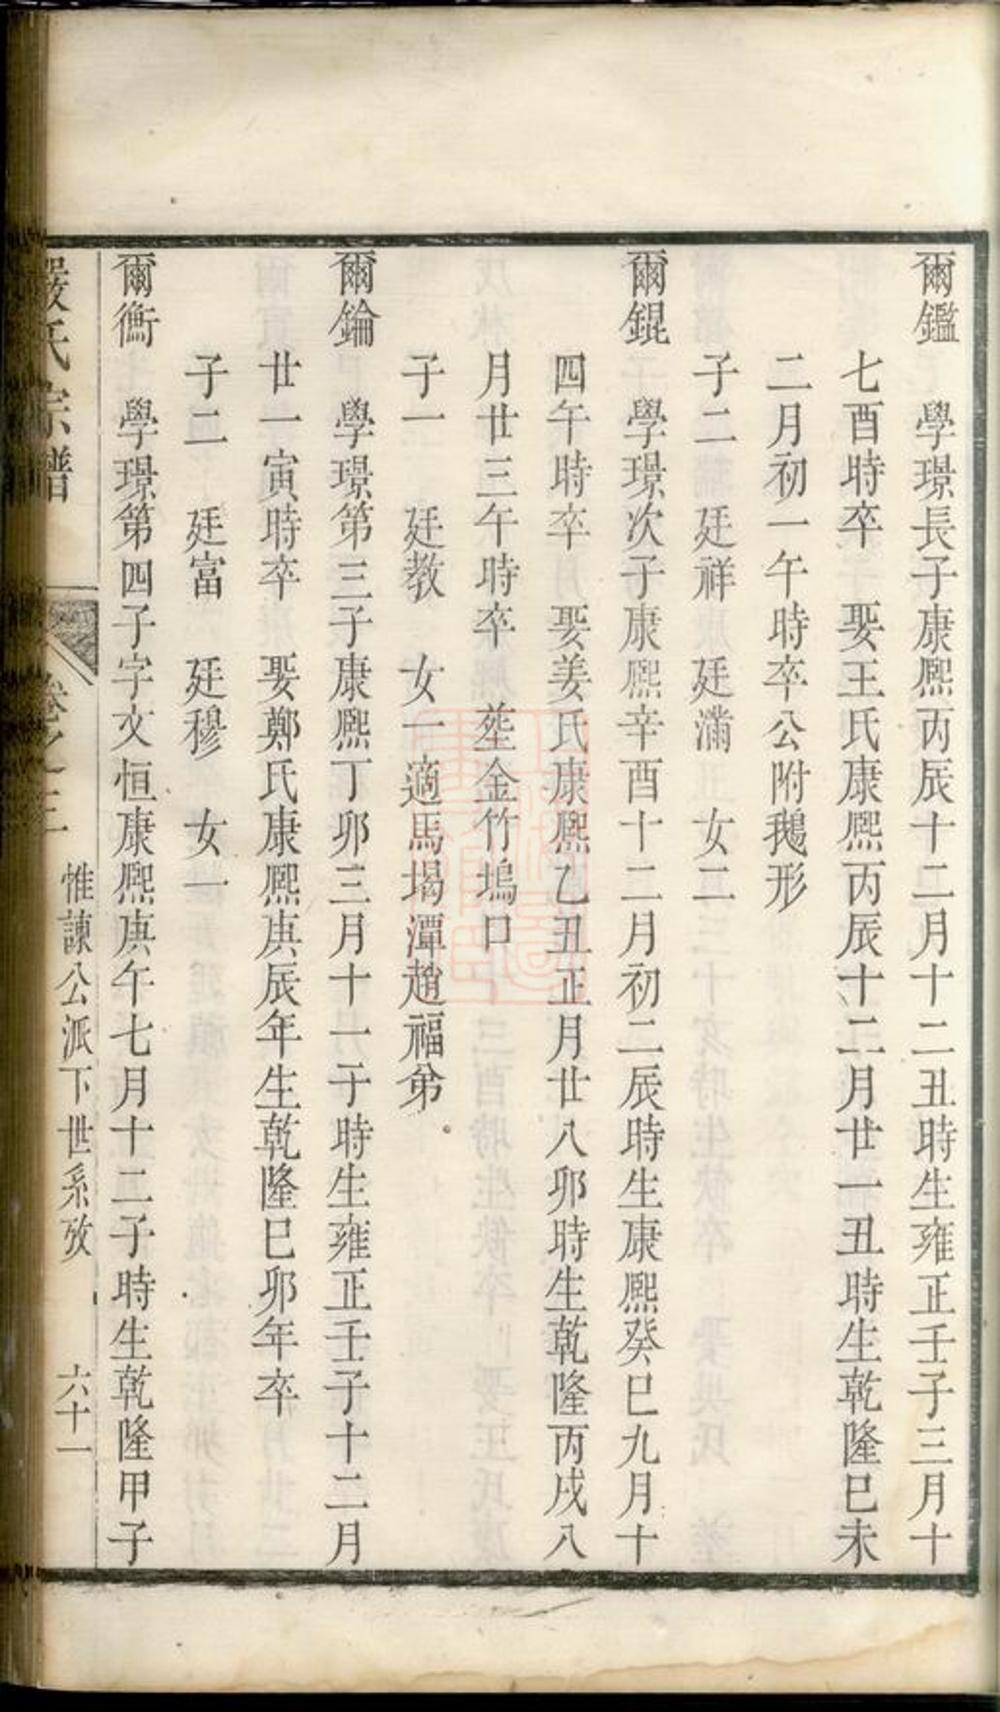 爾鑑　學璟長子康熙丙辰十二月十二丑時生雍正壬子三月十
七酉時卒　娶王氏康熙丙辰十二月廿一丑時生乾隆己未
二月初一午時卒公附鵝形
子二　廷祥　廷滿　女二
爾錕　學璟次子康熙辛酉十二月初二辰時生康熙癸巳九月十
四午時卒　娶姜氏康熙乙丑正月廿八卯時生乾隆丙戌八
月廿三午時卒　塟金竹塢口
子一　廷教　女一適馬堨潭趙福弟
爾錀　學璟第三子康熙丁卯三月十一午時生雍正壬子十二月
廿一寅時卒　娶鄭氏康熙庚辰年生乾隆巳卯年卒
子二　廷富　廷穆　女一
爾衡　學璟第四子字文恒康熙庚午七月十二子時生乾隆甲子
嚴氏宗譜　卷之三　惟諫公派下世系攷　六十一